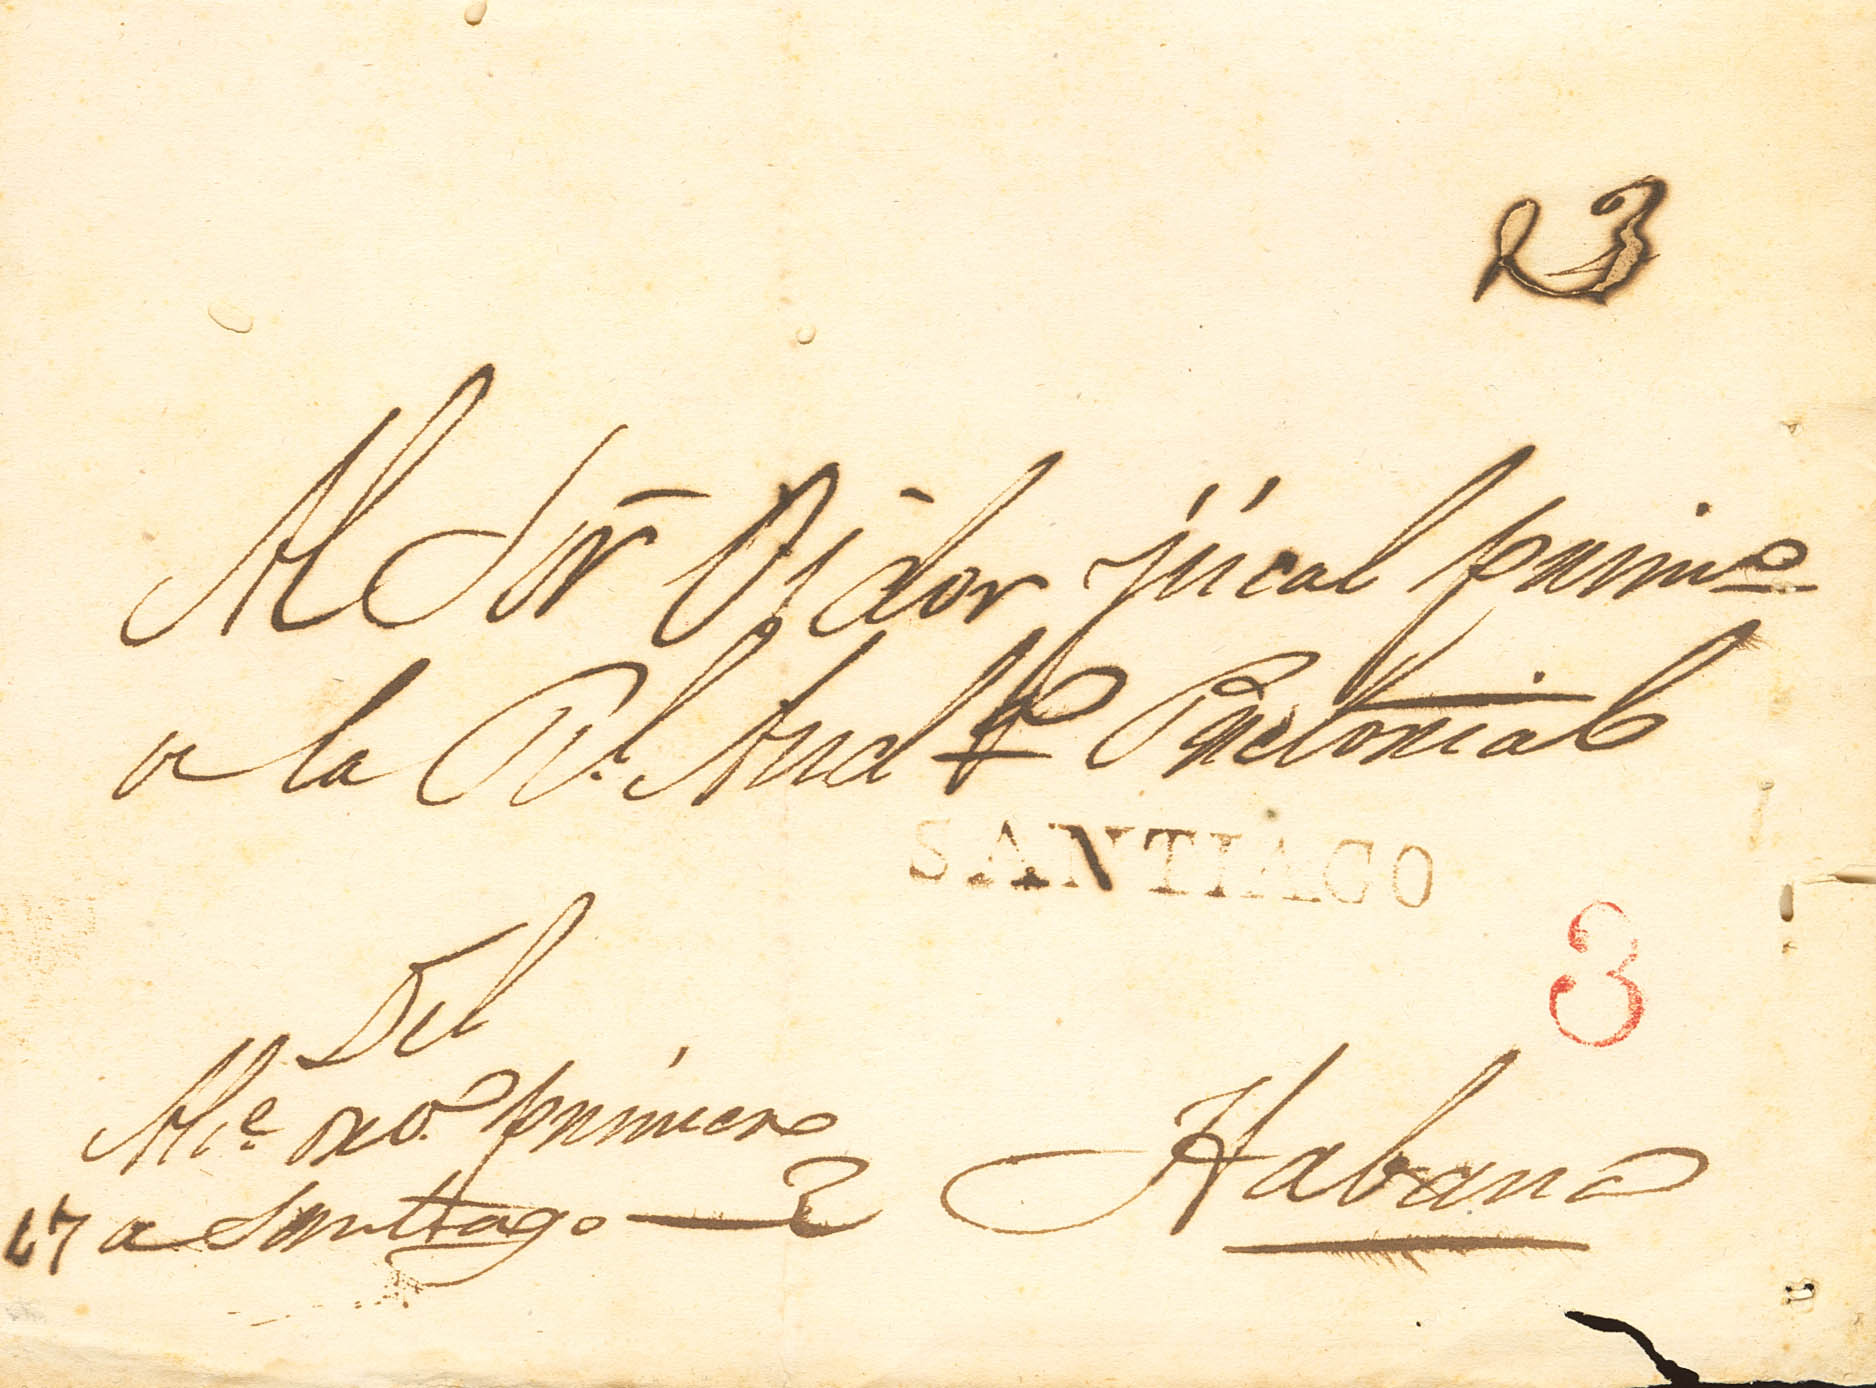 R3
Al Sor Oidor fiscal primo
a la Rl. Aud Pretorial
SANTIAGO
3
Del
Alce. mor. primero
17 a Santiago
Habana